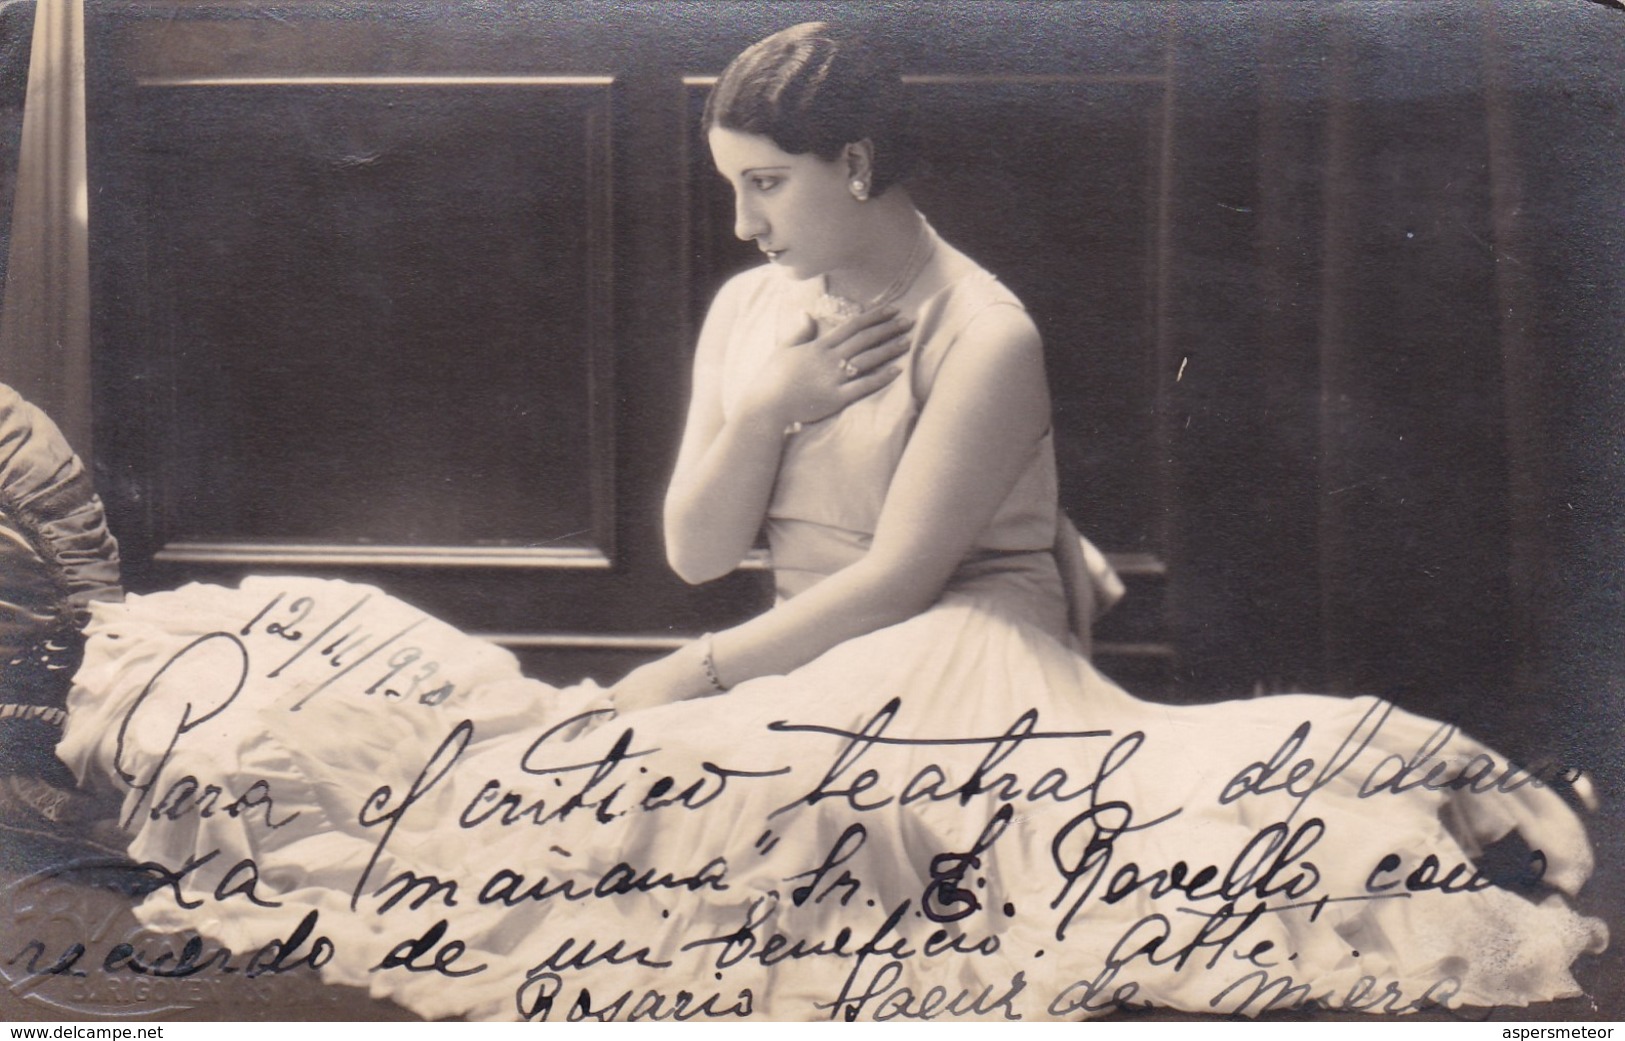 12/11/930
Para el critico teatral del diario
"La mañana", Sr. E. Revello, como
recuerdo de mi beneficio. Atte.
Rosario Saenz de Miera
B. IRIGOYEN
www.delcampe.net
aspersmeteor